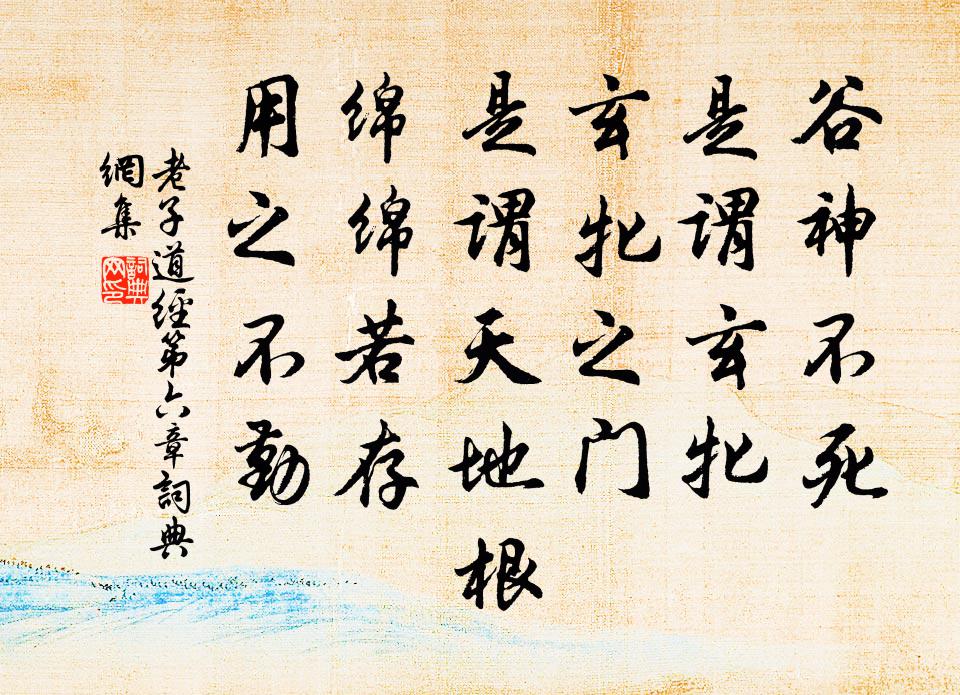 谷神不死
是谓玄牝
玄牝之门
是谓天地根
绵绵若存
用之不勤
老子道經第六章詞典
網集
詞典
网印